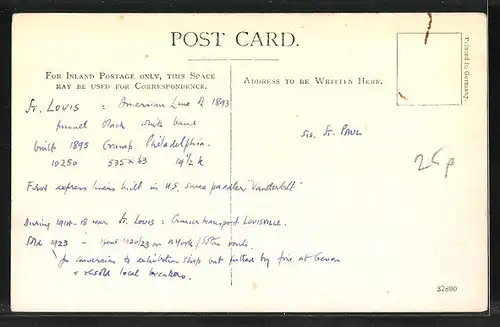 POST CARD.
FOR INLAND POSTAGE ONLY, THIS SPACE
MAY BE USED FOR CORRESPONDENCE.
ADDRESS TO BE WRITTEN HERE.
Printed in Germany.
St. LOUIS : American Line of 1893
funnel black white band
built 1895 Cramp Philadelphia.
10250 535 x 63 19½ k
sis. St. PAUL
25p
First express liners built in U.S. since paddler "Vanderbilt"
During 1914-18 war St. Louis : transport LOUISVILLE.
Sold 1923 - spent 1920/23 on N York / route.
for conversion to exhibition ship but gutted by fire at
+ resold local breakers.
37890